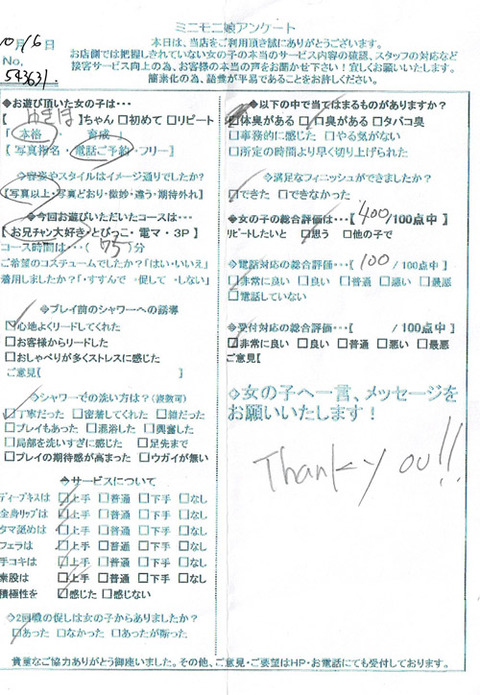 ミニモニ娘アンケート
10月16日
本日は、当店をご利用頂き誠にありがとうございます。
お店側では把握しきれていない女の子の本当のサービス内容の確認、スタッフの対応など
No, 543631
接客サービス向上の為、お客様の本当の声をお聞かせ下さい！宜しくお願いいたします。
簡素化の為、語彙が平易であることをお許しください。
◆お遊び頂いた女の子は・・・
【 】ちゃん □初めて □リピート
「 本格 ・ 育成 」
【 写真指名 ・ 電話ご予約 ・フリー】
◇容姿やスタイルはイメージ通りでしたか?
【写真以上・写真どおり・微妙・違う・期待外れ】
◆今回お遊びいただいたコースは・・・
【お兄チャン大好き・とびっこ・電マ・3P】
コース時間は・・・( 75 )分
ご希望のコスチュームでしたか?「はい・いいえ」
着用しましたか?「・すすんで ・促して ・しない」
◇プレイ前のシャワーへの誘導
□心地よくリードしてくれた
□お客様からリードした
□おしゃべりが多くストレスに感じた
ご意見[ ]
◇シャワーでの洗い方は？(複数可)
□丁寧だった □密着してくれた □雑だった
□プレイもあった □混浴した □興奮した
□局部を洗いすぎに感じた □足先まで
□プレイの期待感が高まった □ウガイが無い
◆サービスについて
ディープキスは □上手 □普通 □下手 □なし
全身リップは □上手 □普通 □下手 □なし
タマ舐めは □上手 □普通 □下手 □なし
フェラは □上手 □普通 □下手 □なし
手コキは □上手 □普通 □下手 □なし
素股は □上手 □普通 □下手 □なし
積極性を □感じた □感じない
◇2回戦の促しは女の子からありましたか？
□あった □なかった □あったが断った
◆以下の中で当てはまるものがありますか？
□体臭がある □口臭がある □タバコ臭
□事務的に感じた □やる気がない
□所定の時間より早く切り上げられた
◇満足なフィニッシュができましたか？
□できた □できなかった
◆女の子の総合評価は・・・【 400 /100点中 】
リピートしたいと □思う □他の子で
◇電話対応の総合評価・・・[ 100 /100点中 ]
□非常に良い □良い □普通 □悪い □最悪
□電話していない
◆受付対応の総合評価・・・【 /100点中 】
□非常に良い □良い □普通 □悪い □最悪
ご意見【 】
◇女の子へ一言、メッセージを
お願いいたします！
Thank you!!
貴重なご協力ありがとう御座いました。その他、ご意見・ご要望はHP・お電話にても受付しております。